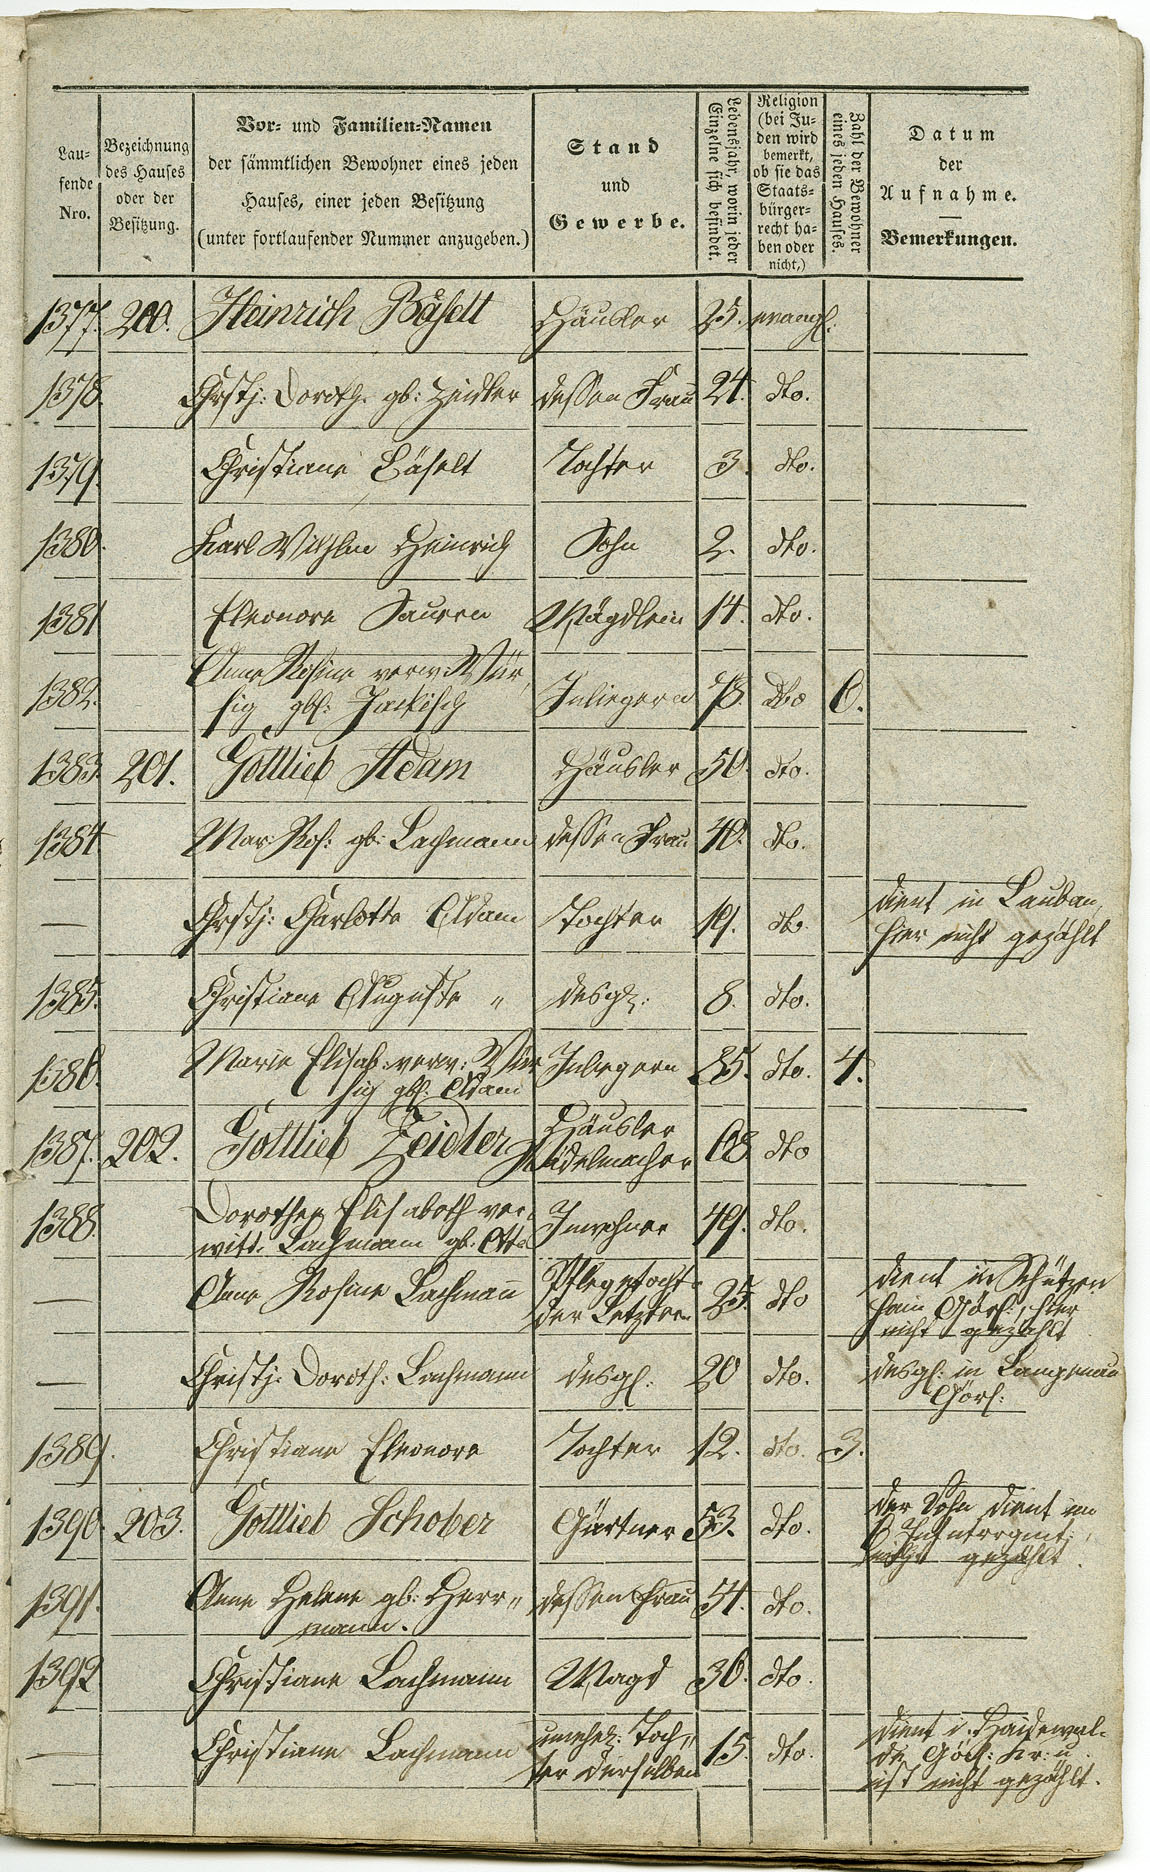 Lau-
fende
Nro.
Bezeichnung
des Hauses
oder der
Besitzung.
Vor- und Familien-Namen
der sämmtlichen Bewohner eines jeden
Hauses, einer jeden Besitzung
(unter fortlaufender Nummer anzugeben.)
Stand
und
Gewerbe.
Lebensjahr, worin jeder
Einzelne sich befindet.
Religion
(bei Ju-
den wird
bemerkt,
ob sie das
Staats-
bürger-
recht ha-
ben oder
nicht,)
Zahl der Bewohner
eines jeden Hauses.
Datum
der
Aufnahme.
Bemerkungen.
1377. 200. Heinrich Bäselt Häusler 25. evangl.
1378. Chrstj: Doroth: gb: Zeidler dessen Frau 24. dto.
1379. Christiane Bäselt Tochter 3. dto.
1380. Karl Wilhlm Heinrich Sohn 2. dto.
1381 Eleonore Mägdlein 14. dto.
1382. Anne Rosine verw: Wür,
sig gb: Jackisch Inliegern dto 6.
1383. 201. Gottlieb Adam Häusler 50. dto.
1384 Mar: Ros: gb: Lachmann dessen Frau 40. dto.
— Chrstj: Charlotte Adam Tochter 19. dto. dient in Lauban,
hier nicht gezählt
1385. Christiane Auguste " desgl: 8. dto.
1386. Marie Elisab: verw: Wür
sig gb: Adam Inliegern 85. dto. 4.
1387. 202. Gottlieb Zeidler Häusler
68. dto
1388. Dorothea Elisabeth ver-
witt: Lachmann gb: Otto Inwohner 49. dto.
— Anne Rosine Lachmann Pflegetocht:
der Letztern 25. dto dient in Schützen
hain Görl:, hier
nicht gezählt
— Christj: Doroth: Lachmann desgl. 20 dto. desgl: in Langenau
Görl:
1389. Christiane Eleonore Tochter 12. dto. 3.
1390. 203. Gottlieb Schober Gärtner 53. dto. der Sohn dient im
6 Infntrregmt:,
nicht gezählt.
1391. Anne Helene gb: Herr-
mann. dessen Frau 54. dto.
1392 Christiane Lachmann Magd 36. dto.
— Christiane Lachmann unehel: Toch-
ter derselben 15. dto. dient i. Haidewal-
de Görl: Kr: u.
ist nicht gezählt.